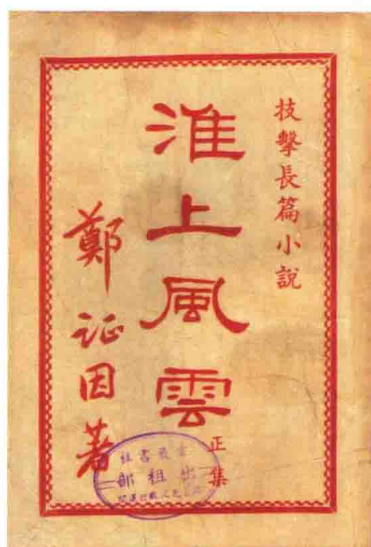 技擊長篇小說
淮上風雲
正集
鄭証因著
出租部